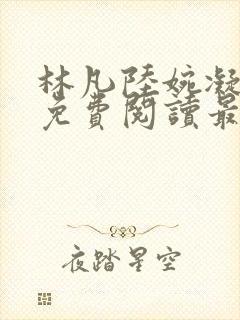 林凡陸婉凝
免費閱讀最
夜踏星空